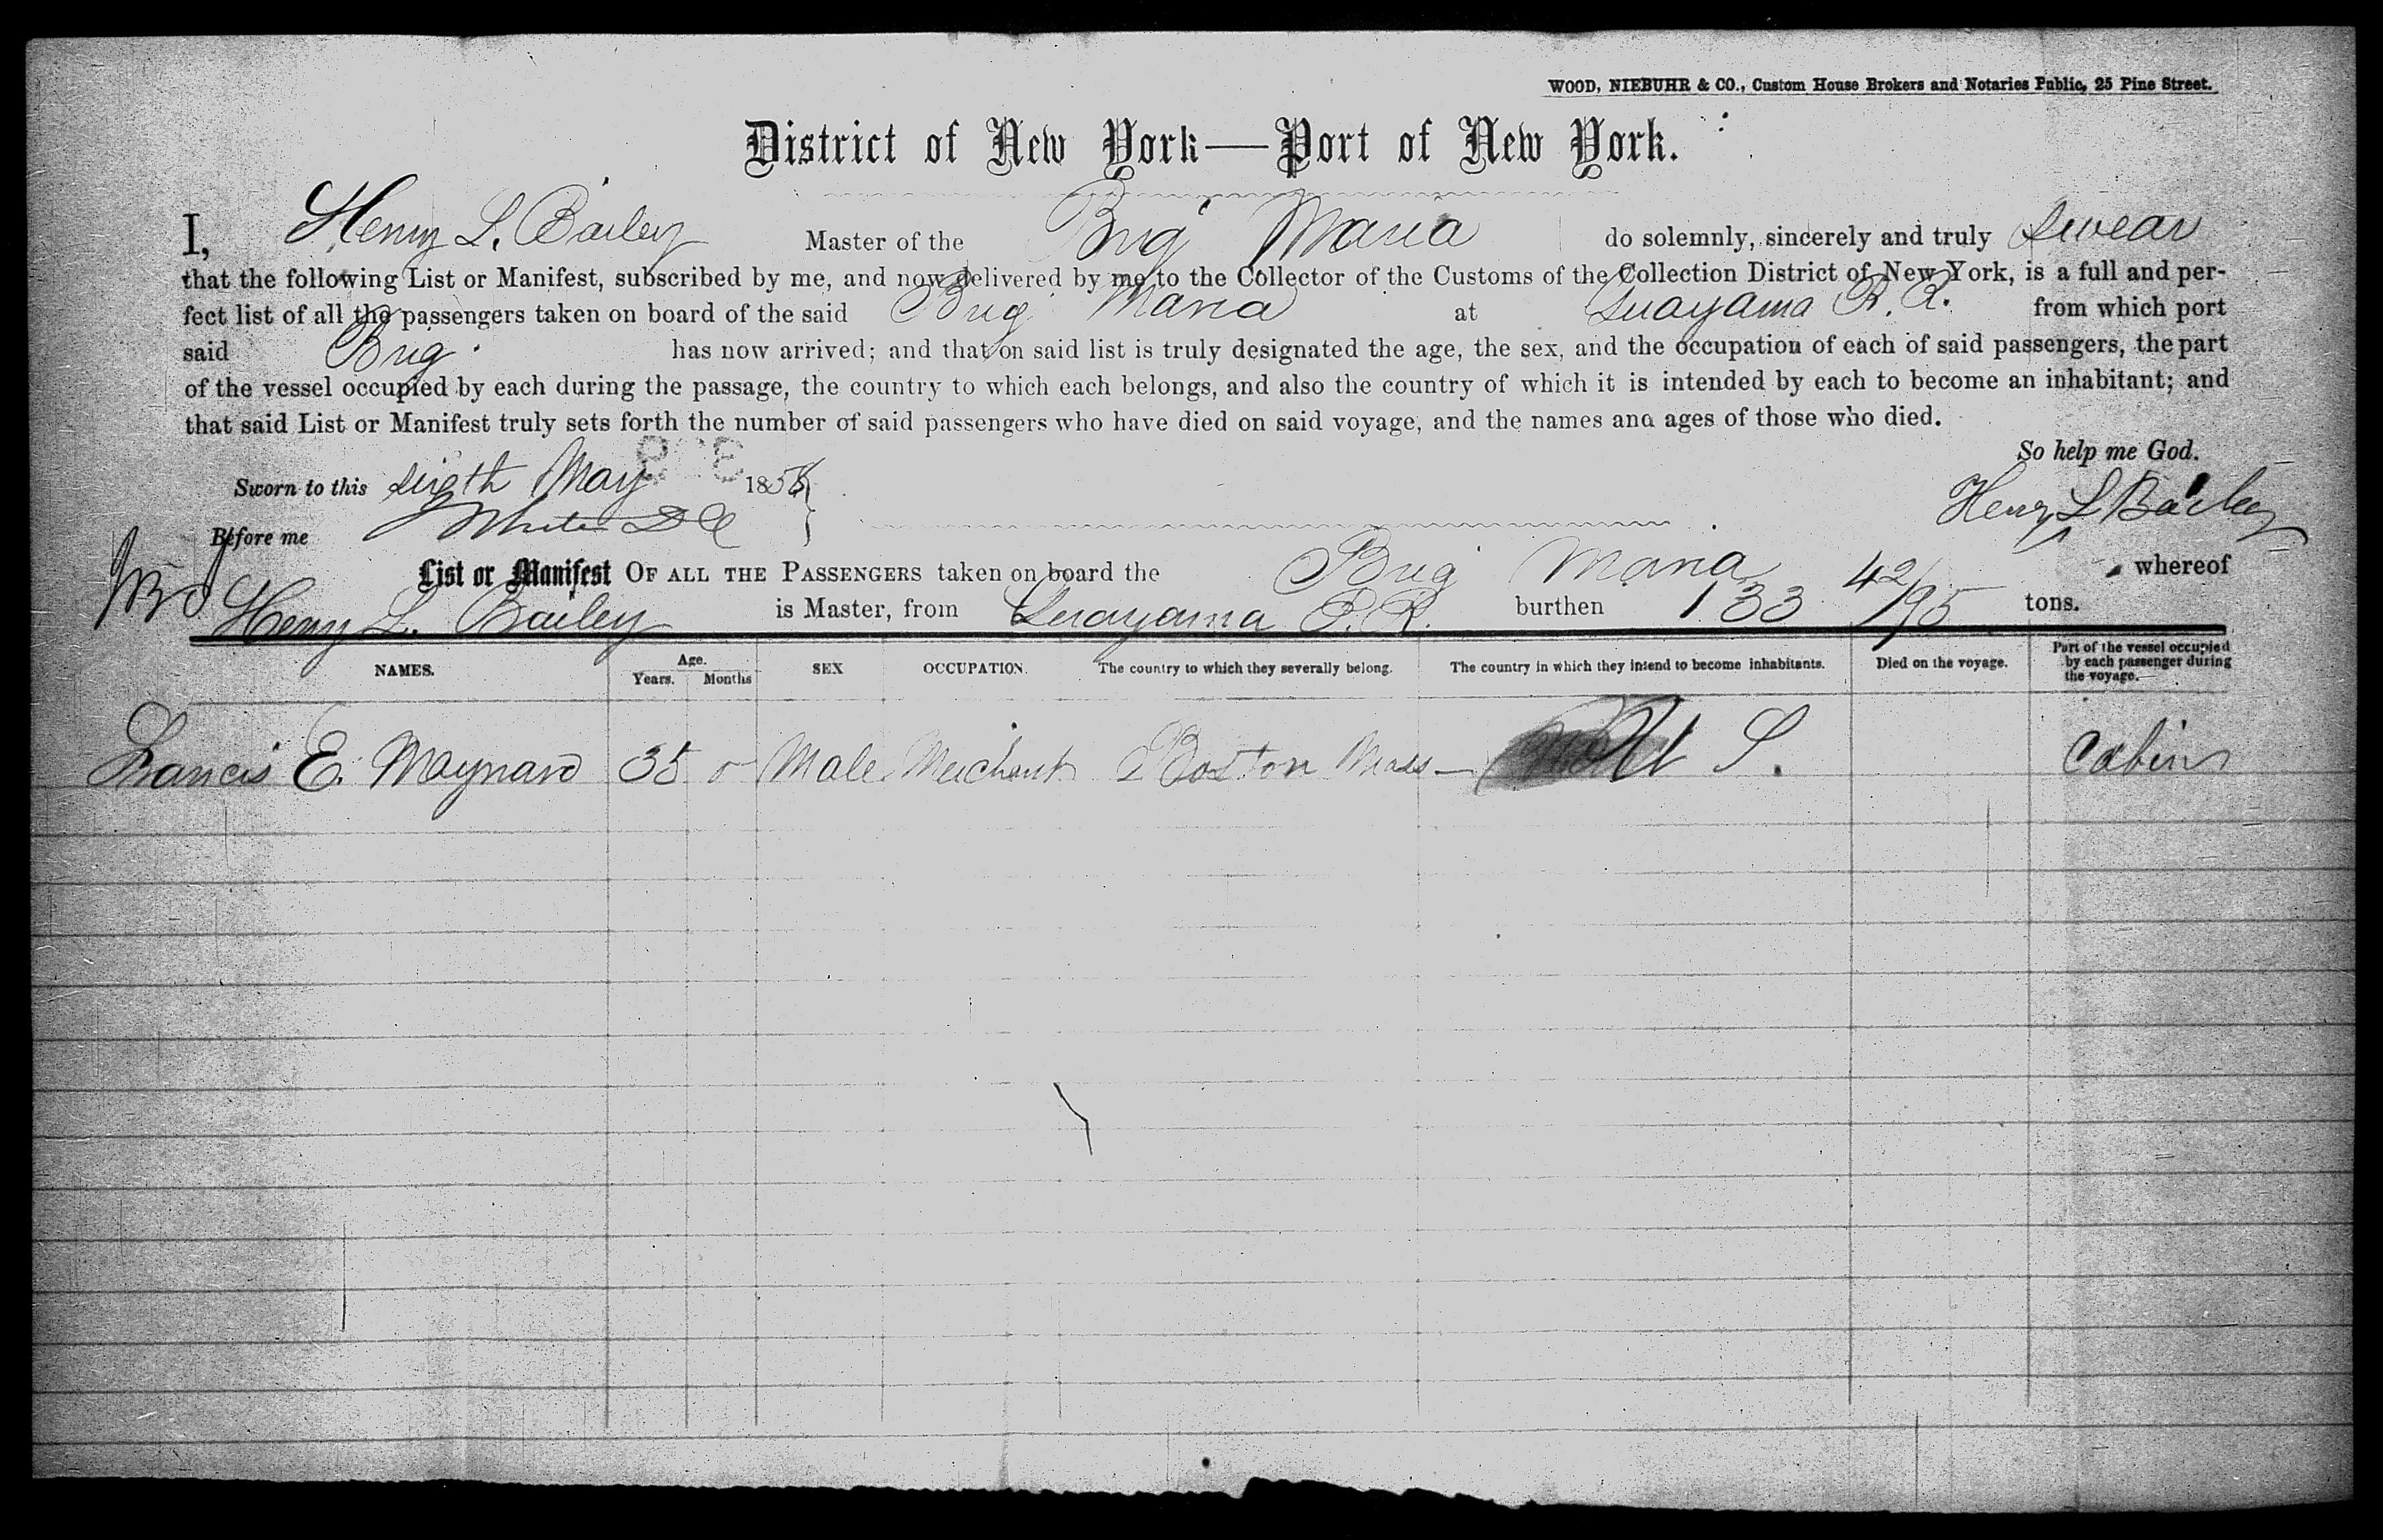 WOOD, NIEBUHR & CO., Custom House Brokers and Notaries Public, 25 Pine Street.
District of New York—Port of New York.
I, Henry L. Bailey Master of the Brig Maria do solemnly, sincerely and truly swear
that the following List or Manifest, subscribed by me, and now delivered by me to the Collector of the Customs of the Collection District of New York, is a full and per-
fect list of all the passengers taken on board of the said Brig Maria at Guayama P. R. from which port
said Brig has now arrived; and that on said list is truly designated the age, the sex, and the occupation of each of said passengers, the part
of the vessel occupied by each during the passage, the country to which each belongs, and also the country of which it is intended by each to become an inhabitant; and
that said List or Manifest truly sets forth the number of said passengers who have died on said voyage, and the names and ages of those who died.
So help me God.
Sworn to this sixth May 185
Before me
Henry L Bailey
List or Manifest OF ALL THE PASSENGERS taken on board the Brig Maria whereof
Henry L. Bailey is Master, from Guayama P. R. burthen 133 42/95 tons.
NAMES. Age. Years. Months SEX OCCUPATION. The country to which they severally belong. The country in which they intend to become inhabitants. Died on the voyage. Part of the vessel occupied by each passenger during the voyage.
Francis E. Maynard 35 0 Male Merchant Boston Mass — U S. Cabin